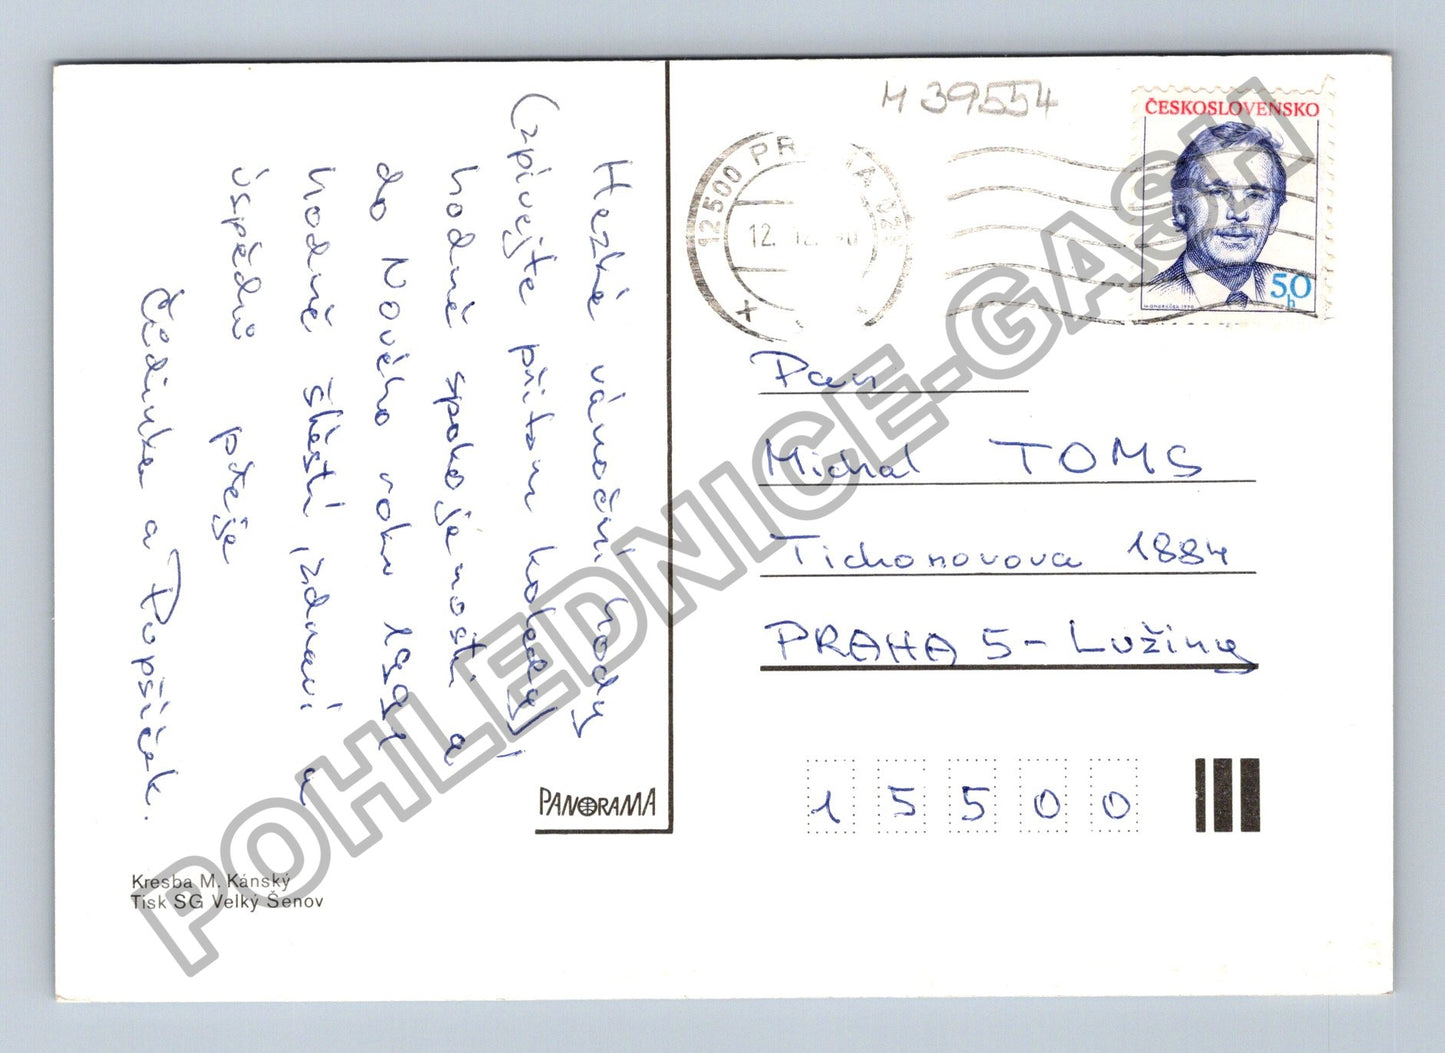 Hezké vánoční hody
(zpívejte přitom koledy)
hodně spokojenosti a
do Nového roku 1991
hodně štěstí, zdraví a
úspěchů přeje
Čédinka a Popšíček.
PANORAMA
Kresba M. Kánský
Tisk SG Velký Šenov
M 39554
12500 PRAHA 025
12. 12. 90
ČESKOSLOVENSKO
50
h
Pan
Michal TOMS
Tichonovova 1884
PRAHA 5 - Lužiny
1 5 5 0 0
POHLEDNICE-GASH